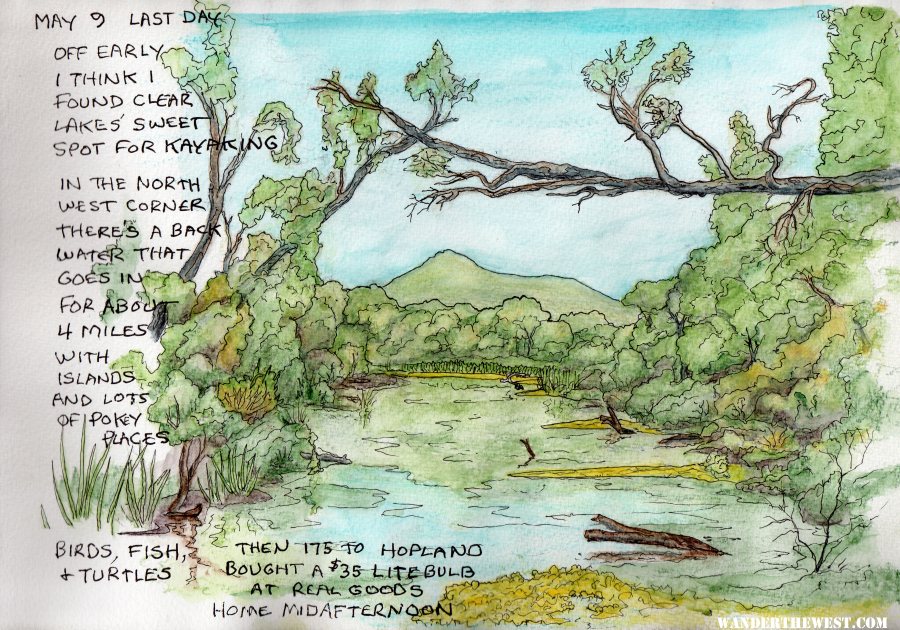 MAY 9 LAST DAY
OFF EARLY
I THINK I
FOUND CLEAR
LAKES' SWEET
SPOT FOR KAYAKING
IN THE NORTH
WEST CORNER
THERE'S A BACK
WATER THAT
GOES IN
FOR ABOUT
4 MILES
WITH
ISLANDS
AND LOTS
OF POKEY
PLACES
BIRDS, FISH,
+ TURTLES
THEN 175 TO HOPLAND
BOUGHT A $35 LITEBULB
AT REAL GOODS
HOME MIDAFTERNOON
WANDERTHEWEST.COM